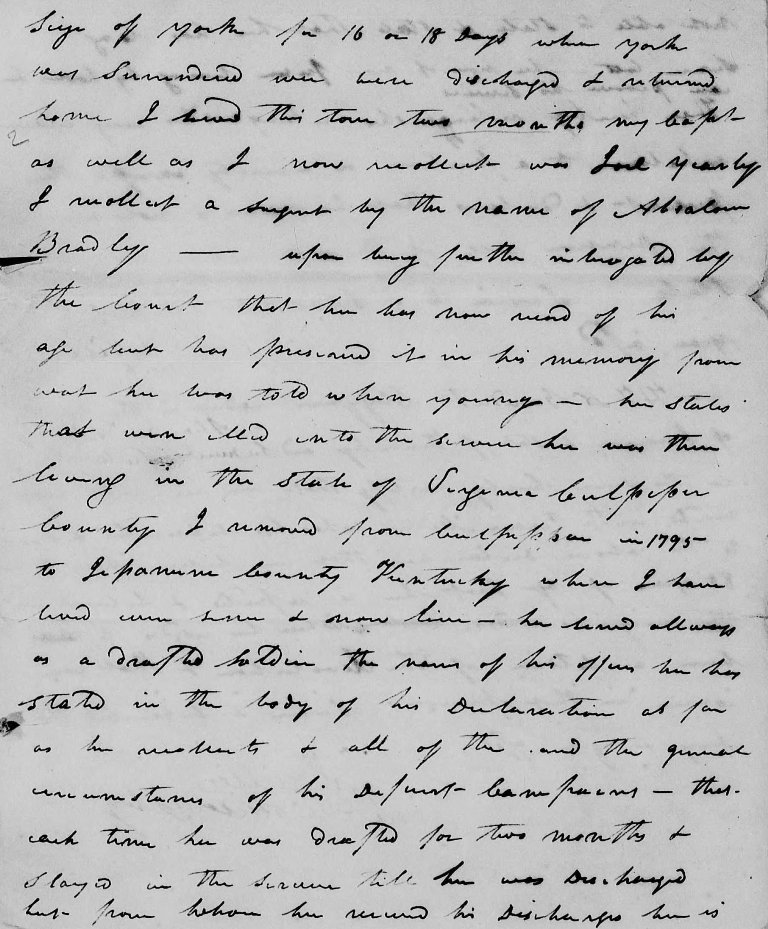 Siege of York for 16 or 18 Days when York
was Surrendered wee were discharged & returned
home I served this tour two months my Capt
as well as I now recollect was Joel Yearly
I recollect a sergent by the name of Absalom
Bradley — upon being further interogated by
the Court that he has now record of his
age but has preserved it in his memory from
what he was told when young — he states
that when called into the service he was then
living in the State of Virginia Culpeper
County I removed from Culpepper in 1795
to Jessamine County Kentucky where I have
lived ever since & now live — he served allways
as a drafted soldier the names of his officers he has
stated in the body of his Declaration as far
as he recollects & all of the and the general
circumstances of his Different Campaigns — that
each time he was drafted for two months &
stayed in the service till he was Discharged
but from whom he received his Discharges he is